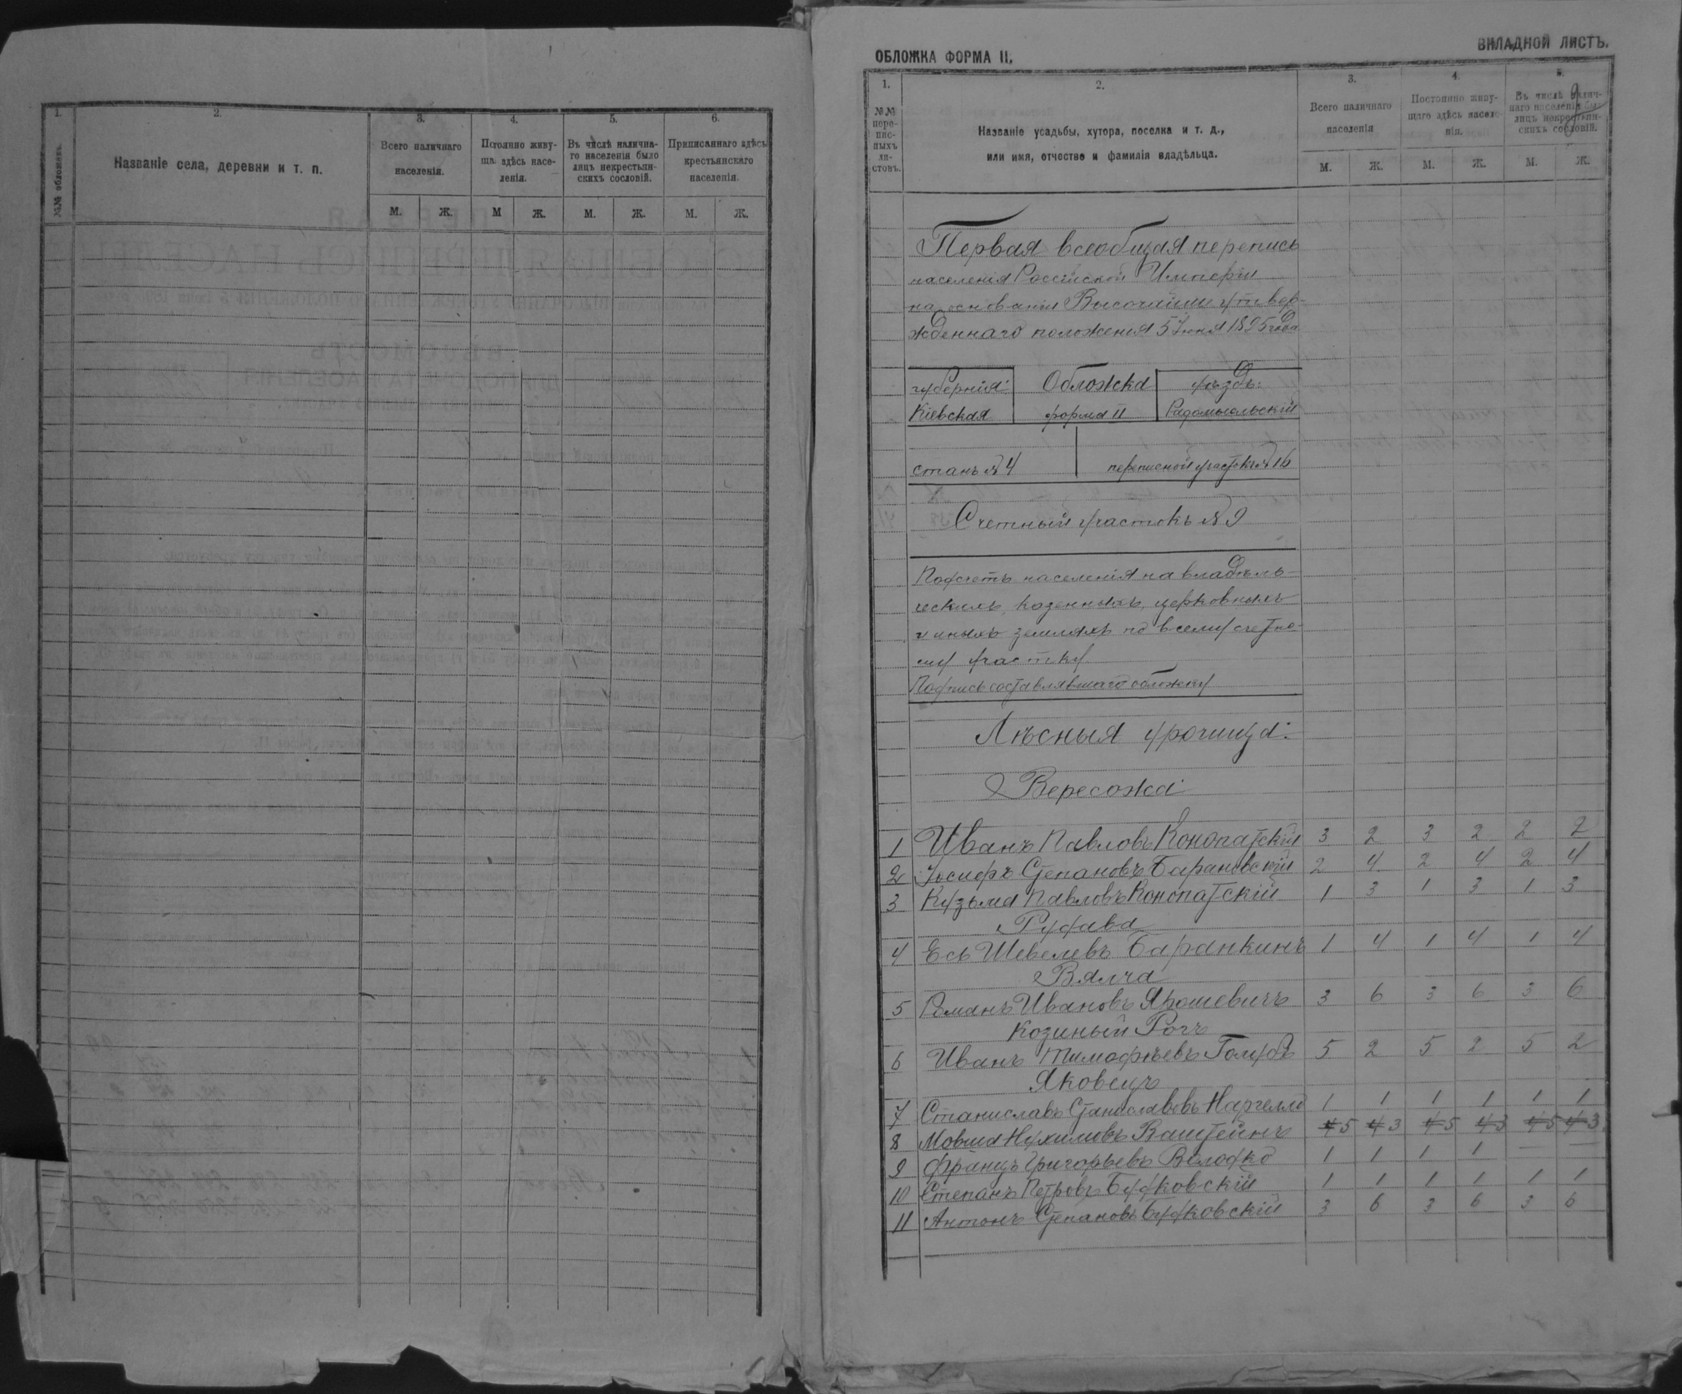 1.
2.
3.
4.
5.
6.
№№ обложекъ.
Названіе села, деревни и т. п.
Всего наличнаго
населенія.
Постоянно живу-
ща здѣсь насе-
ленія.
Въ числѣ налична-
го населенія было
лицъ некрестьян-
скихъ сословій.
Приписаннаго здѣсь
крестьянскаго
населенія.
М. Ж. М Ж. М. Ж. М. Ж.
ОБЛОЖКА ФОРМА II.
ВКЛАДНОЙ ЛИСТЪ.
1.
2.
3.
4.
№№
пере-
пис-
ныхъ
ли-
стовъ.
Названіе усадьбы, хутора, поселка и т. д.,
или имя, отчество и фамилія владѣльца.
Всего наличнаго
населенія
Постоянно живу-
щаго здѣсь населе-
нія.
Въ числѣ налич-
наго населенія
лицъ некрестьян-
скихъ сословій.
М. Ж. М. Ж. М. Ж.
Первая всеобщая перепись
населенія Россійской Имперіи
на основаніи Высочайше утвер-
жденнаго положенія 5 Іюня 1895 года
губернія:
Кіевская
Обложка
форма II
уѣздъ:
Радомысльскій
станъ № 4
переписной участокъ № 16
Счетный участокъ № 9
Подсчетъ населенія на владѣль-
ческихъ, казенныхъ, церковныхъ
и иныхъ земляхъ по всему счетно-
му участку
Подпись составлявшаго обложку
Лѣсныя урочища:
Вересожа
1 Иванъ Павловъ Конопатскій 3 2 3 2 2 2
2 Іосифъ Степановъ Барановскій 2 4 2 4 2 4
3 Кузьма Павловъ Конопатскій 1 3 1 3 1 3
Рудава
4 Есь Шевелевъ Баранкинъ 1 4 1 4 1 4
Вялча
5 Романъ Ивановъ Ярошевичъ 3 6 3 6 3 6
Козиный Рогъ
6 Иванъ Тимофѣевъ 5 2 5 2 5 2
Яковецъ
7 Станиславъ Станиславовъ Наргелло 1 1 1 1 1 1
8 Мовша Нухимовъ Ваштейнъ 5 3 5 3 5 3
9 Францъ Григорьевъ Володко 1 1 1 1 — —
10 Степанъ Петровъ Будковскій 1 1 1 1 1 1
11 Антонъ Степановъ Будковскій 3 6 3 6 3 6